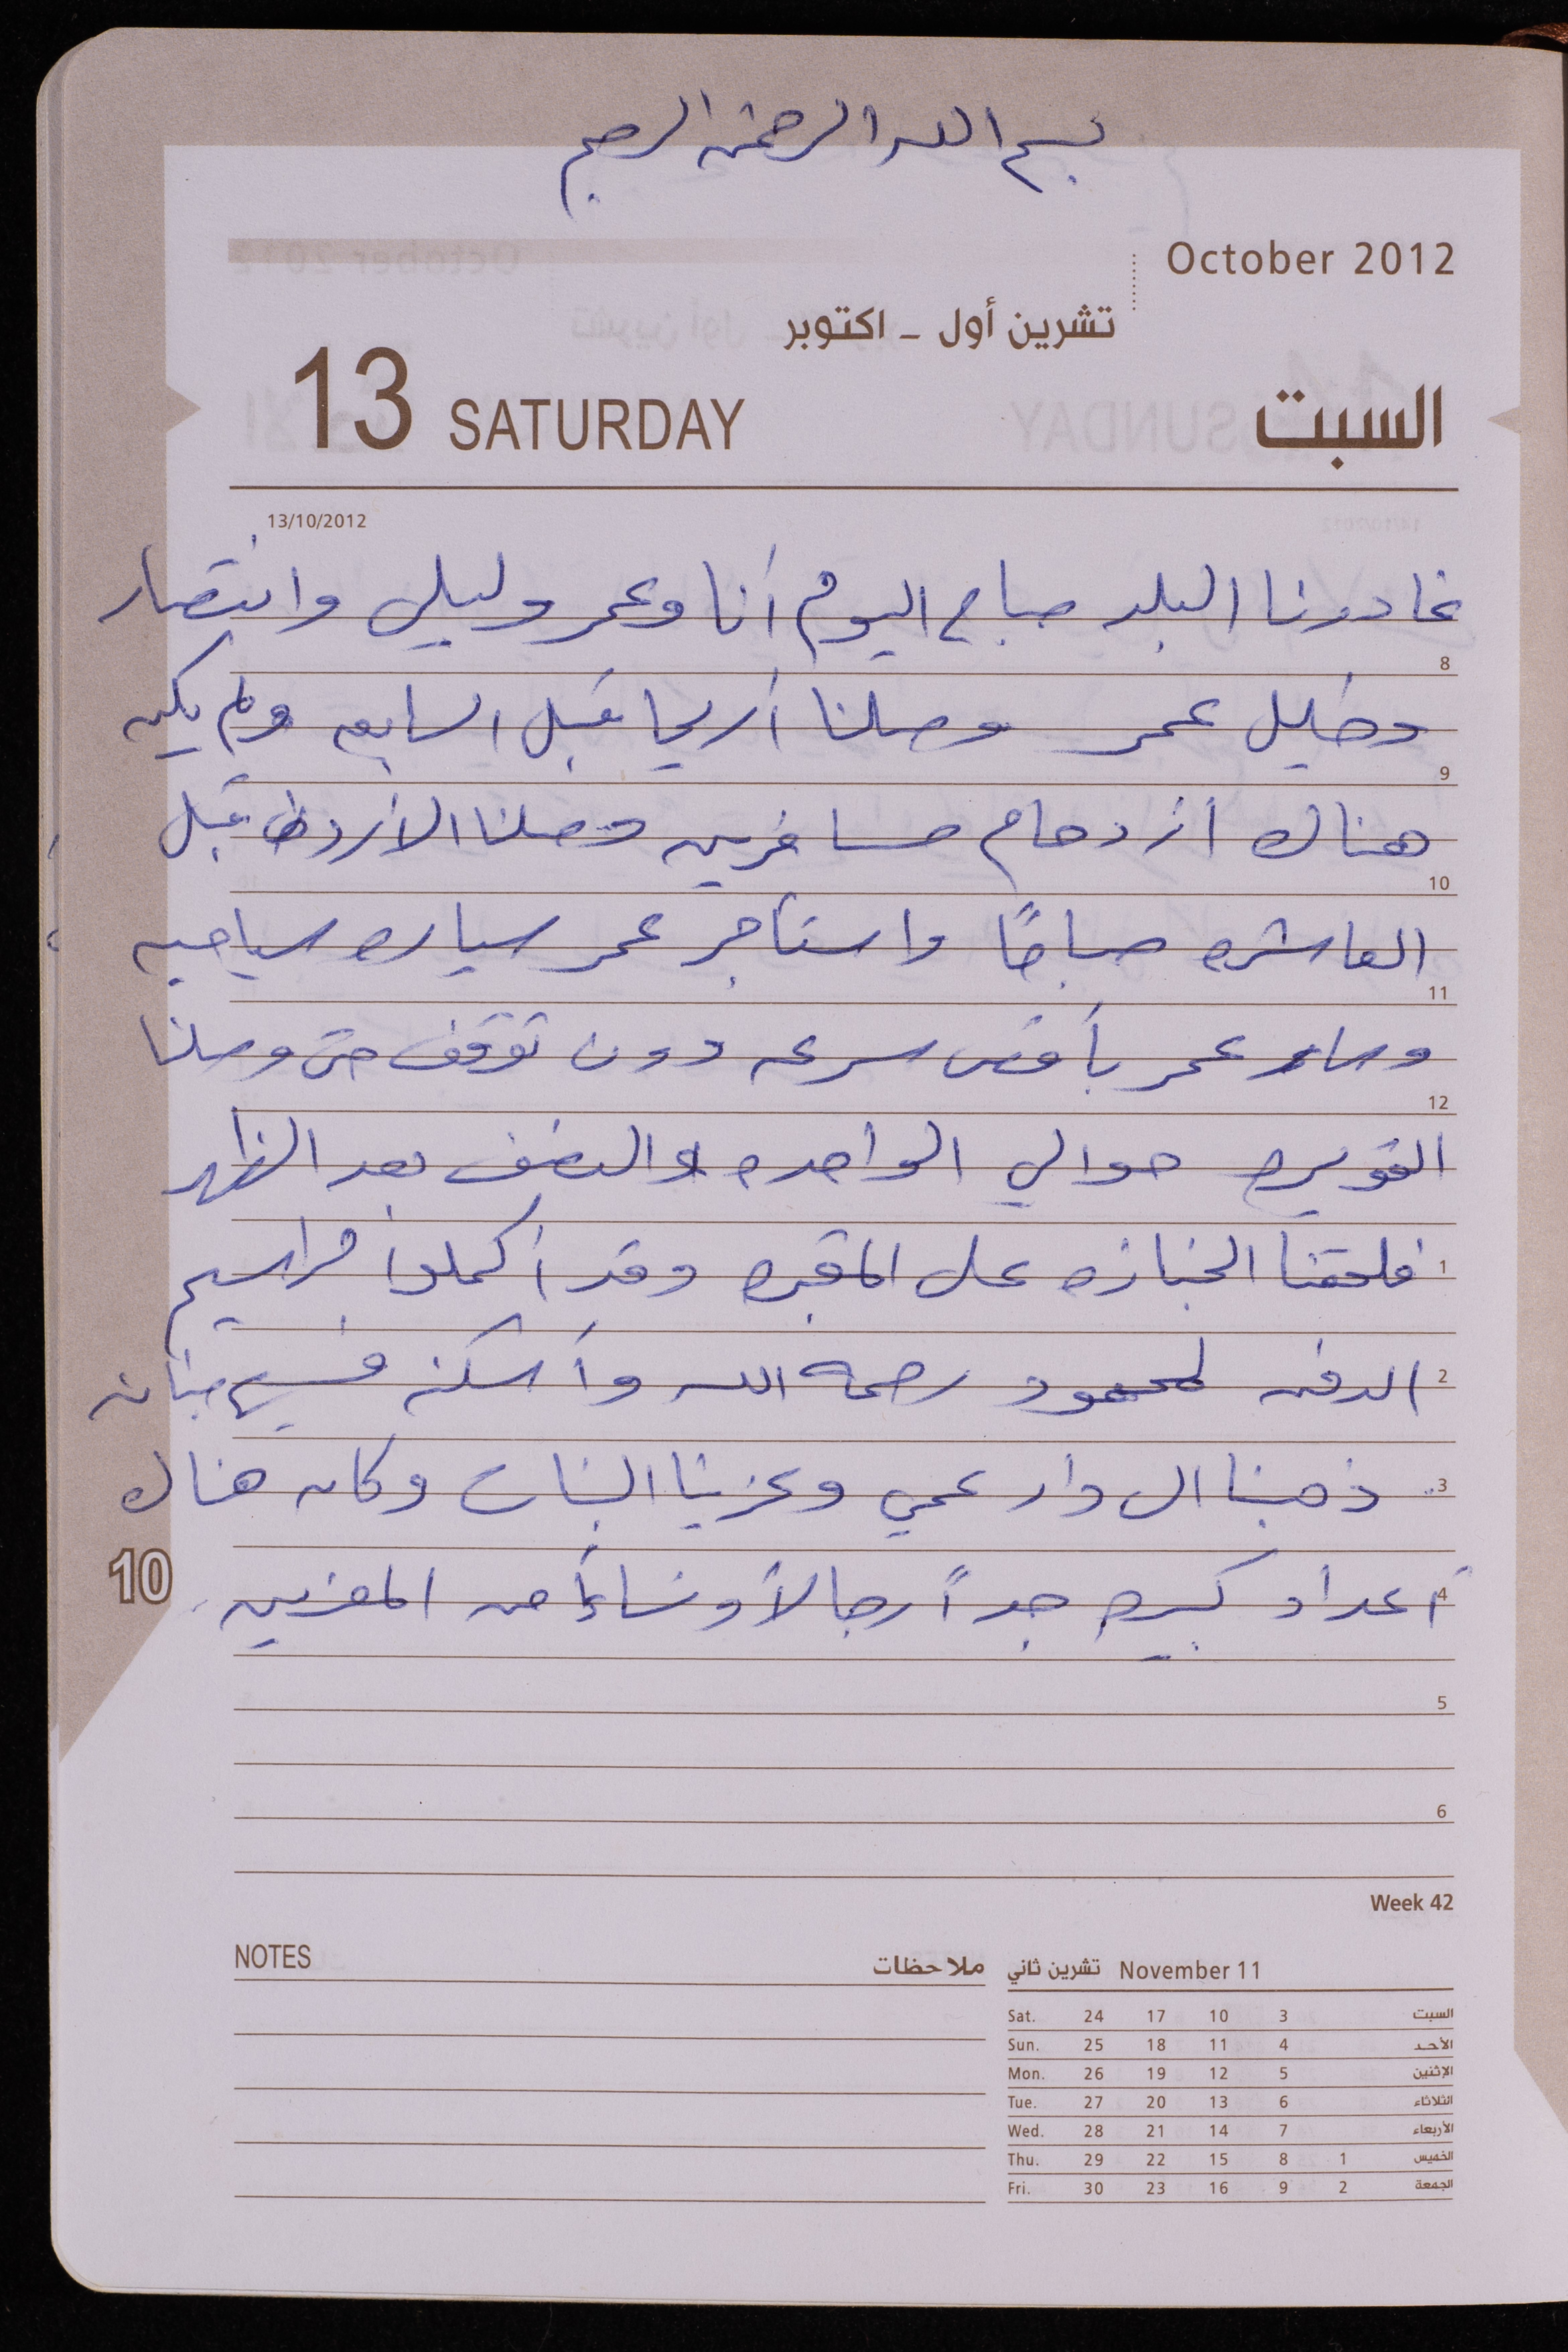 بسم الله الرحمن الرحيم
October 2012
تشرين أول - اكتوبر
13 SATURDAY السبت
13/10/2012
غادرنا البلد صباح اليوم أنا وعمر وليلى وانتصار
8
وخليل عمر وصلنا أريحا قبل السابعه ولم يكن
9
هناك أزدحام مسافرين وصلنا الأردن قبل
10
العاشره صباحًا واستأجر عمر سياره سياحيه
11
وسار عمر بأقصى سرعه دون توقف حتى وصلنا
12
القويره حوالي الواحده والنصف بعد الظهر
1 فلحقنا الجنازه على المقبره وقد أكملوا مراسيم
2 الدفن لمحمود رحمة الله وأسكنه فسيح جنانه
3 ذهبنا الى دار عمي وعزينا البنات وكان هناك
10
4 أعداد كبيره جداً رجالاً ونساءً من المعزين
5
6
Week 42
NOTES ملاحظات
November 11 تشرين ثاني
Sat. 24 17 10 3 السبت
Sun. 25 18 11 4 الأحد
Mon. 26 19 12 5 الإثنين
Tue. 27 20 13 6 الثلاثاء
Wed. 28 21 14 7 الأربعاء
Thu. 29 22 15 8 1 الخميس
Fri. 30 23 16 9 2 الجمعة